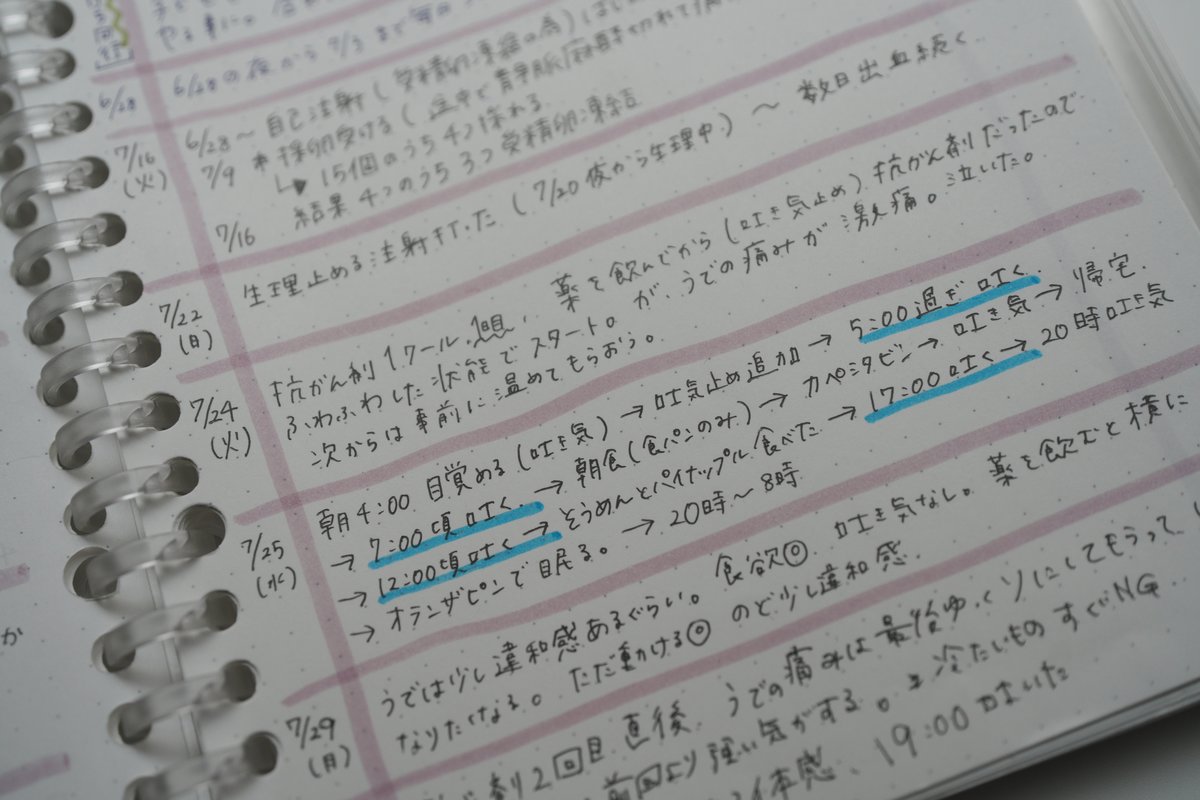 6/28
6/28の夜から7/3まで毎日
7/16
(火)
6/28〜 自己注射(受精卵凍結の為)はじ
7/9 * 採卵受ける(途中で静脈麻酔切れて痛
↳ 15個のうち4つ採れる
結果 4つのうち3つ受精卵凍結
7/16
生理止める注射打った(7/20夜から生理中)〜 数日出血続く
7/22
(月)
抗がん剤1クール1回目、薬を飲んでから(吐き気止め)抗がん剤だったので
ふわふわした状態でスタート。が、うでの痛みが激痛。泣いた。
次からは事前に温めてもらおう。
7/24
(火)
朝4:00 目覚める(吐き気)→吐気止め追加→5:00過ぎ吐く
→7:00頃吐く→朝食(食パンのみ)→カペシタビン→吐き気→帰宅
→12:00頃吐く→そうめんとパイナップル食べた→17:00吐く→20時吐き気
→オランザピンで眠る。→20時〜8時
7/25
(水)
うでは少し違和感あるぐらい。食欲◎ 吐き気なし。薬を飲むと横に
なりたくなる。ただ動ける◎ のど少し違和感
7/29
(月)
剤2回目 直後、うでの痛みは最後ゆっくりにしてもらって、
前回より強い気がする。冷たいものすぐNG
体感、19:00吐いた